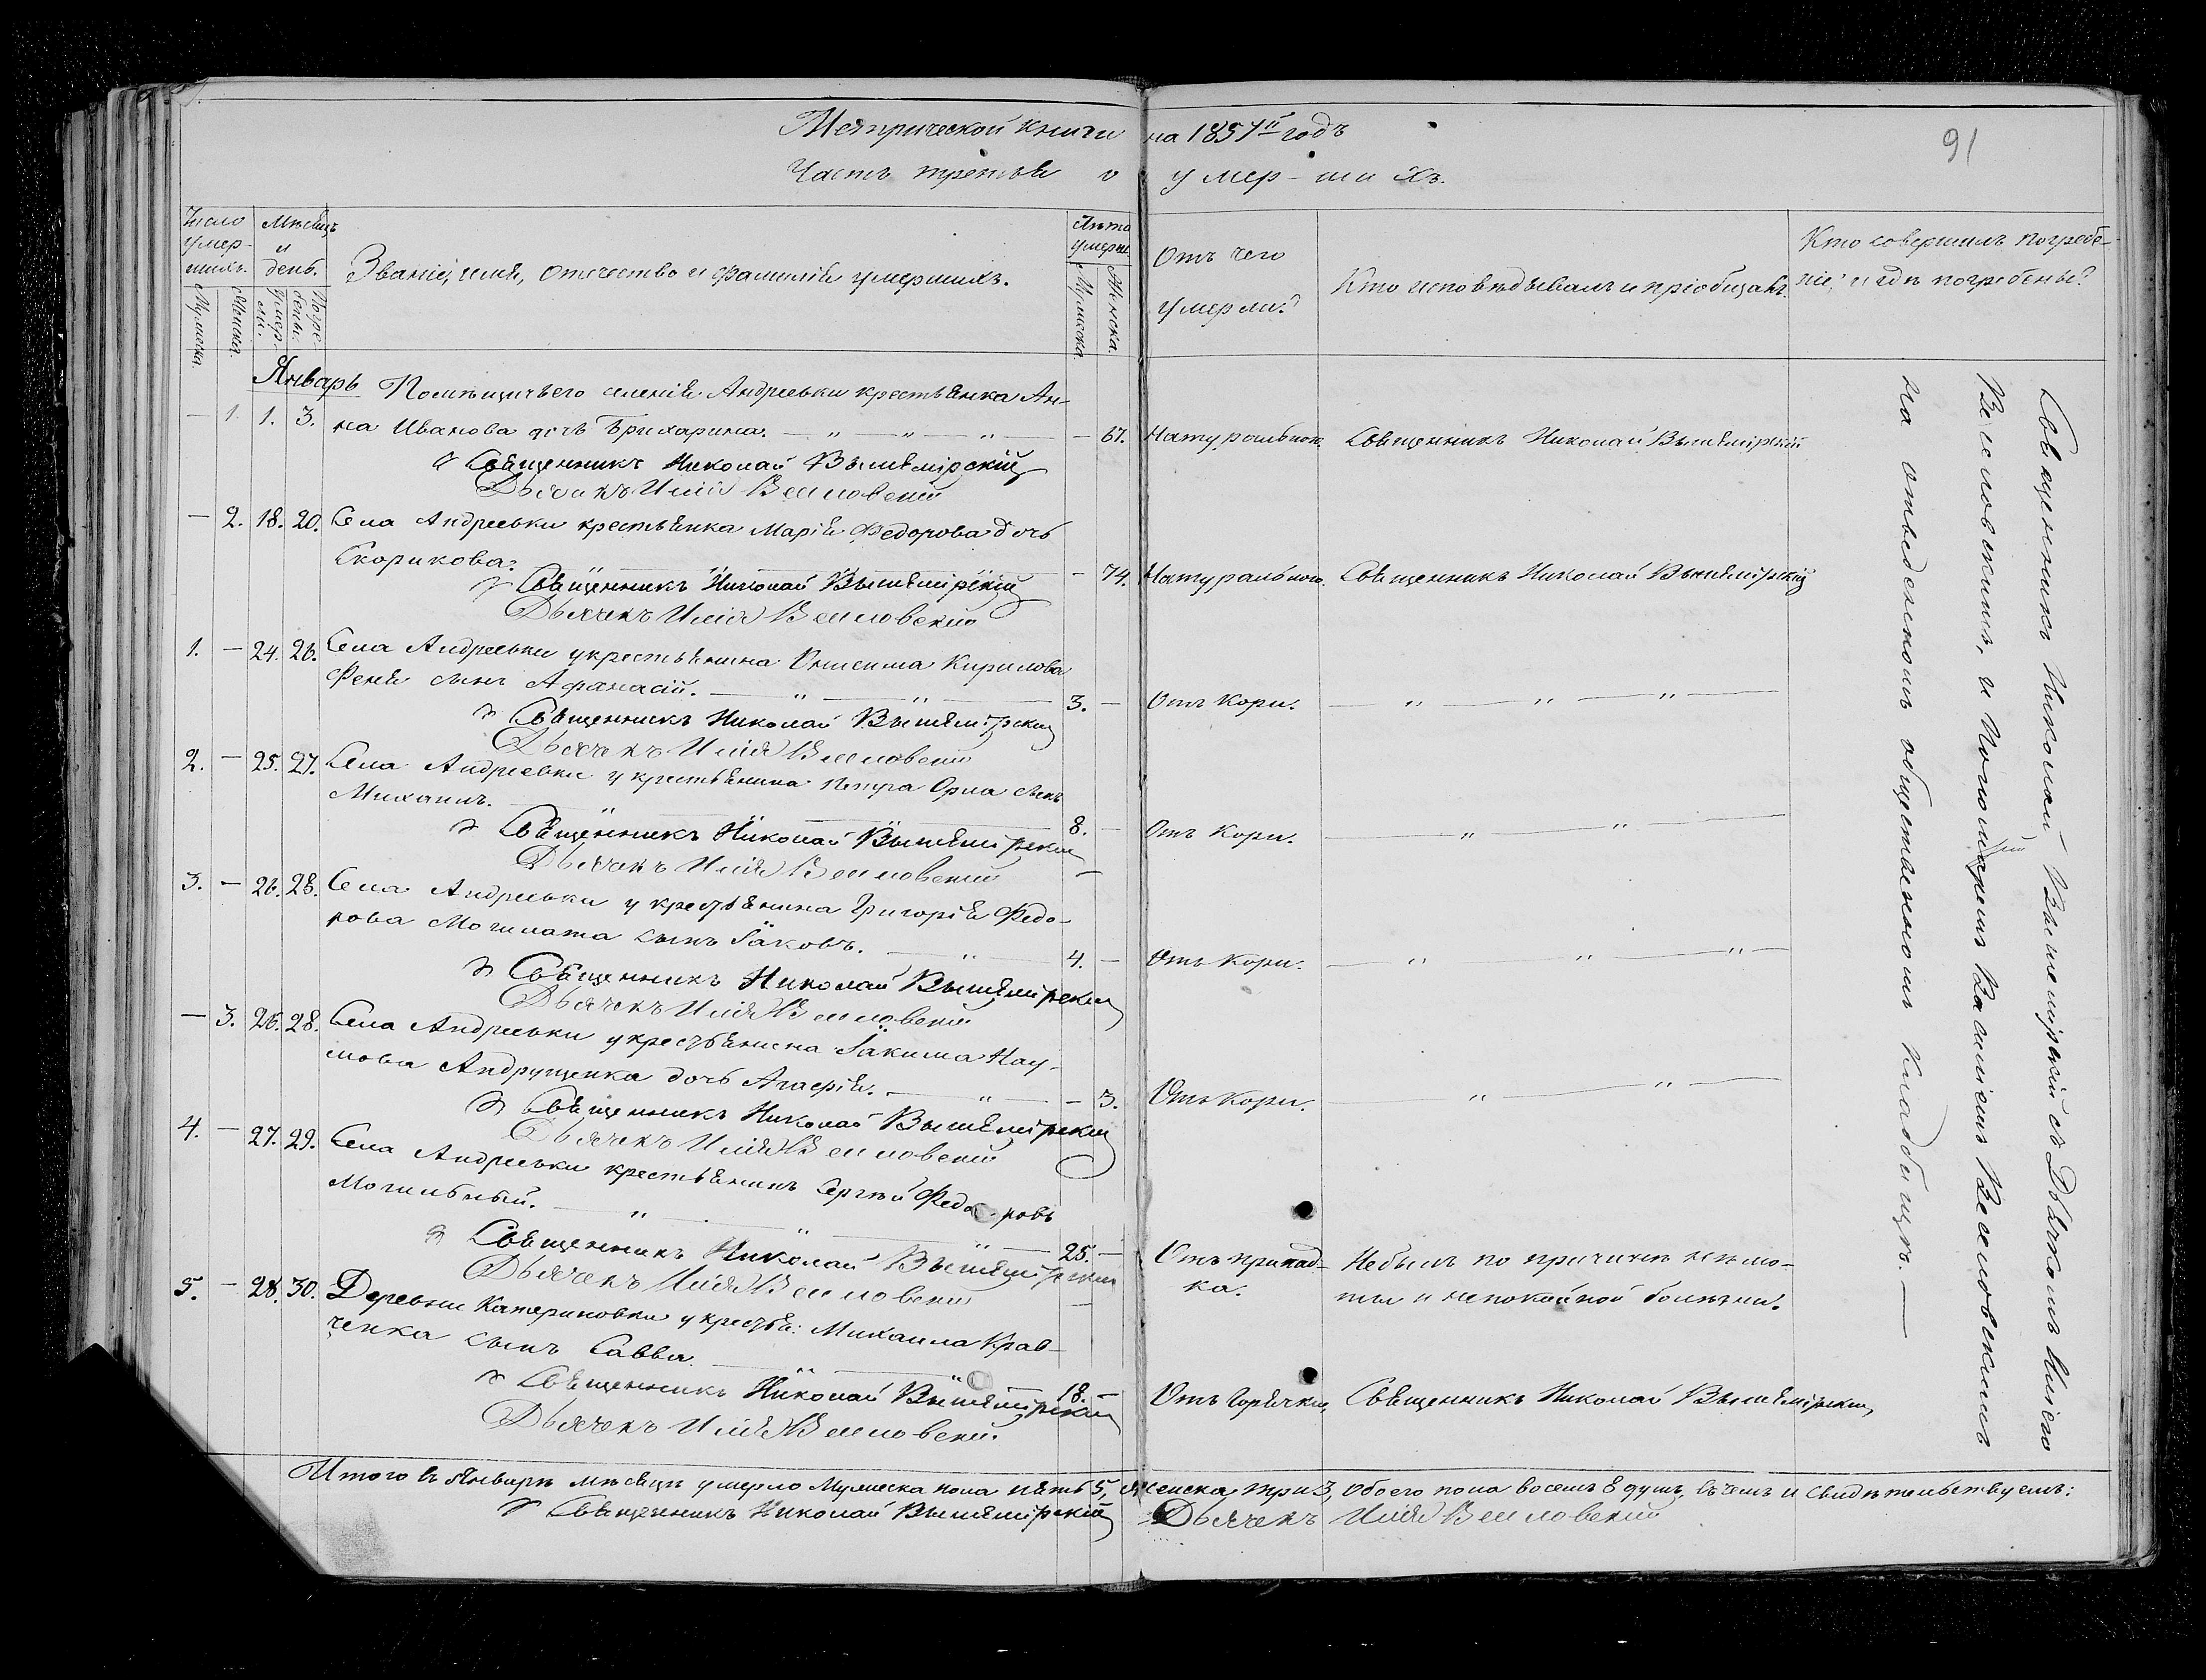 Метрической книги на 1857й годъ
91
Часть третья о умер-шихъ.
Число умер-шихъ.
Мужеска.
Женска.
Мѣсяцъ и день.
умер-ли.
Погре-бены.
Званіе, имя, отчество и фамилія умершихъ.
Лѣта умерш.
Мужеска.
Женска.
Отъ чего умерли?
Кто исповѣдывалъ и пріобщалъ.
Кто совершалъ погребе-
ніе, и гдѣ погребены?
Январь
Помѣщичьего селенія Андреевки крестьянка Ан-
— 1. 1. 3. на Иванова дочь Брихарина. — 67. Натуральною. Священникъ Николай Вышемірскій
Священникъ Николай Вышемірскій
Дьячекъ Илія Веселовскій
— 2. 18. 20. Села Андреевки крестьянка Марія Федорова дочь
Скорикова. — 74. Натуральною. Священникъ Николай Вышемірскій
Священникъ Николай Вышемірскій
Дьячекъ Илія Веселовскій
1. — 24. 26. Села Андреевки у крестьянина Онисима Кирилова
Феня сынъ Афанасій. 3. — Отъ Кори.
Священникъ Николай Вышемірскій
Дьячекъ Илія Веселовскій
2. — 25. 27. Села Андреевки у крестьянина Петра Орла сынъ
Михаилъ. 8. — Отъ Кори.
Священникъ Николай Вышемірскій
Дьячекъ Илія Веселовскій
3. — 26. 28. Села Андреевки у крестьянина Григорія Федо-
рова Могилата сынъ Іаковъ. 4. — Отъ Кори.
Священникъ Николай Вышемірскій
Дьячекъ Илія Веселовскій
— 3. 26. 28. Села Андреевки у крестьянина Іакима Нау-
мова Андрущенка дочь Агафія. — 3. Отъ Кори.
Священникъ Николай Вышемірскій
Дьячекъ Илія Веселовскій
4. — 27. 29. Села Андреевки крестьянинъ Сергѣй Федоровъ
Могильный. 25. — Отъ припад-
ка. Небылъ по причинѣ немо-
ты и непокойной болѣзни.
Священникъ Николай Вышемірскій
Дьячекъ Илія Веселовскій
5. — 28. 30. Деревни Катериновки у крестья: Михаила Крав-
ченка сынъ Савва. 18. — Отъ Горячки. Священникъ Николай Вышемірскій
Священникъ Николай Вышемірскій
Дьячекъ Илія Веселовскій.
Священникъ Николай Вышемірскій съ Дьячкомъ Иліею
Веселовскимъ, и Пономаремъ Василіемъ Веселовскимъ
на отведенномъ общественномъ кладбищѣ. —
Итого въ Январѣ мѣсяцѣ умерло Мужеска пола пять 5, Женска три 3, Обоего пола восемь 8 душъ, въ чемъ и свидѣтельствуемъ:
Священникъ Николай Вышемірскій Дьячекъ Илія Веселовскій